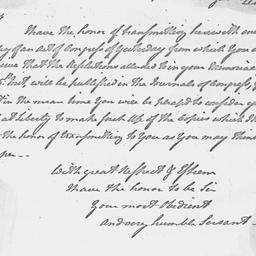 I have the honor of transmitting herewith one
of an act of Congress of Yesterday from which you
that the Resolutions alluded to in your Memorial
Inst. will be published in the Journals of Congress,
in the mean time you will be pleased to consider
at Liberty to make such use of the copies which
the honor of transmitting to you as you may think
per—
With great Respect & Esteem
I have the honor to be Sir
Your most Obedient
and very humble Servant—